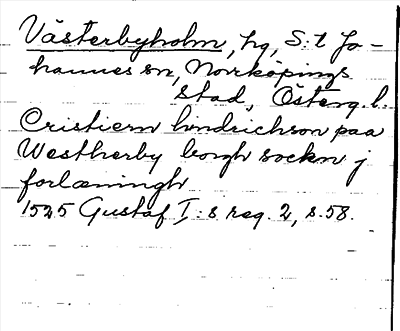 Västerbyholm, hg, S:t Jo-
hannes sn, Norrköpings
stad, Österg. l.
Cristiern hindrichson paa
Westherby borgh sockn j
forlæningh
1525 Gustaf I:s reg. 2, s. 58.